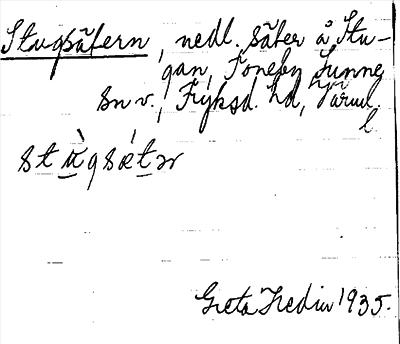 Stugsätern, nedl. säter å Stu-
gan, Toneby Sunne
sn v., Fryksd. hd, Värml.
l
stùgsǽtər
Greta Hedin 1935.